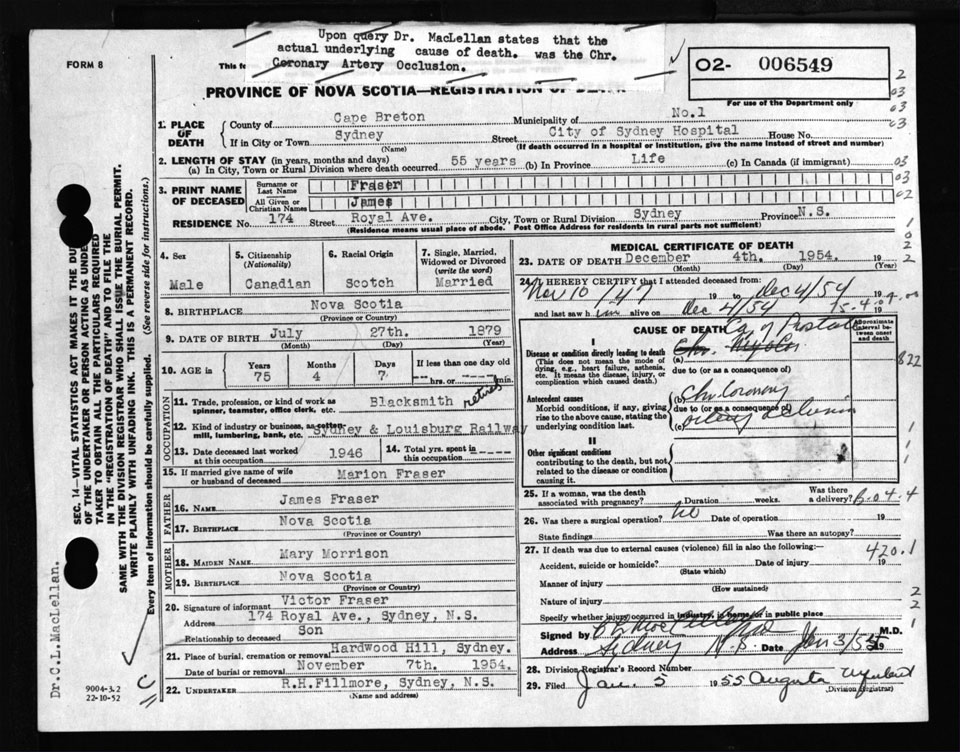 Upon query Dr. MacLellan states that the
actual underlying cause of death. was the Chr.
Coronary Artery Occlusion.
FORM 8
This
O2- 006549
For use of the Department only
PROVINCE OF NOVA SCOTIA—REGISTRATION OF DEATH
1. PLACE OF DEATH
County of Cape Breton Municipality of No.1
If in City or Town Sydney (Name) Street City of Sydney Hospital House No.
(If death occurred in a hospital or institution, give the name instead of street and number)
2. LENGTH OF STAY (in years, months and days)
(a) In City, Town or Rural Division where death occurred 55 years (b) In Province Life (c) In Canada (if immigrant)
3. PRINT NAME OF DECEASED
Surname or Last Name Fraser
All Given or Christian Names James
RESIDENCE No. 174 Street Royal Ave. City, Town or Rural Division Sydney Province N.S.
(Residence means usual place of abode. Post Office Address for residents in rural parts not sufficient)
4. Sex
Male
5. Citizenship (Nationality)
Canadian
6. Racial Origin
Scotch
7. Single, Married, Widowed or Divorced (write the word)
Married
8. BIRTHPLACE Nova Scotia
(Province or Country)
9. DATE OF BIRTH July 27th. 1879
(Month) (Day) (Year)
10. AGE in Years 75 Months 4 Days 7 If less than one day old hrs. or min.
OCCUPATION
11. Trade, profession or kind of work as spinner, teamster, office clerk, etc. Blacksmith retired
12. Kind of industry or business, as cotton mill, lumbering, bank, etc. Sydney & Louisburg Railway
13. Date deceased last worked at this occupation 1946
14. Total yrs. spent in this occupation
15. If married give name of wife or husband of deceased Marion Fraser
FATHER
16. NAME James Fraser
17. BIRTHPLACE Nova Scotia
(Province or Country)
MOTHER
18. MAIDEN NAME Mary Morrison
19. BIRTHPLACE Nova Scotia
(Province or Country)
20. Signature of informant Victor Fraser
Address 174 Royal Ave., Sydney, N.S.
Relationship to deceased Son
21. Place of burial, cremation or removal Hardwood Hill, Sydney.
Date of burial or removal November 7th. 1954.
22. UNDERTAKER R.H.Fillmore, Sydney, N.S.
(Name and address)
MEDICAL CERTIFICATE OF DEATH
23. DATE OF DEATH December 4th. 1954. 19
(Month) (Day) (Year)
24. I HEREBY CERTIFY that I attended deceased from
Nov 10/47 19 to Dec 4/54 19
and last saw him alive on Dec 4/54 19
CAUSE OF DEATH
Approximate interval between onset and death
I
Disease or condition directly leading to death
(This does not mean the mode of dying, e.g., heart failure, asthenia, etc. It means the disease, injury, or complication which caused death.)
Ca of Prostate
due to (or as a consequence of)
Antecedent causes
Morbid conditions, if any, giving rise to the above cause, stating the underlying condition last.
(b) Chr Coronary
due to (or as a consequence of)
(c) artery occlusion
II
Other significant conditions
contributing to the death, but not related to the disease or condition causing it.
25. If a woman, was the death associated with pregnancy? Duration weeks. Was there a delivery?
26. Was there a surgical operation? No Date of operation 19
State findings Was there an autopsy?
27. If death was due to external causes (violence) fill in also the following:—
420.1
Accident, suicide or homicide? Date of injury 19
(State which)
Manner of injury
(How sustained)
Nature of injury
Specify whether injury occurred in industry, in home, or in public place
Signed by M.D.
Address Sydney N.S. Date Jan 3/55
28. Division Registrar's Record Number
29. Filed Jan. 5 1955 Augusta
(Division Registrar)
SEC. 14—VITAL STATISTICS ACT MAKES IT THE DUTY
OF THE UNDERTAKER OR PERSON ACTING AS UNDER-
TAKER TO OBTAIN ALL THE PARTICULARS REQUIRED
IN THE "REGISTRATION OF DEATH" AND TO FILE THE
SAME WITH THE DIVISION REGISTRAR WHO SHALL ISSUE THE BURIAL PERMIT.
WRITE PLAINLY WITH UNFADING INK. THIS IS A PERMANENT RECORD.
Every item of information should be carefully supplied. (See reverse side for instructions.)
Dr.C.L.MacLellan.
9004-3.2
22-10-52